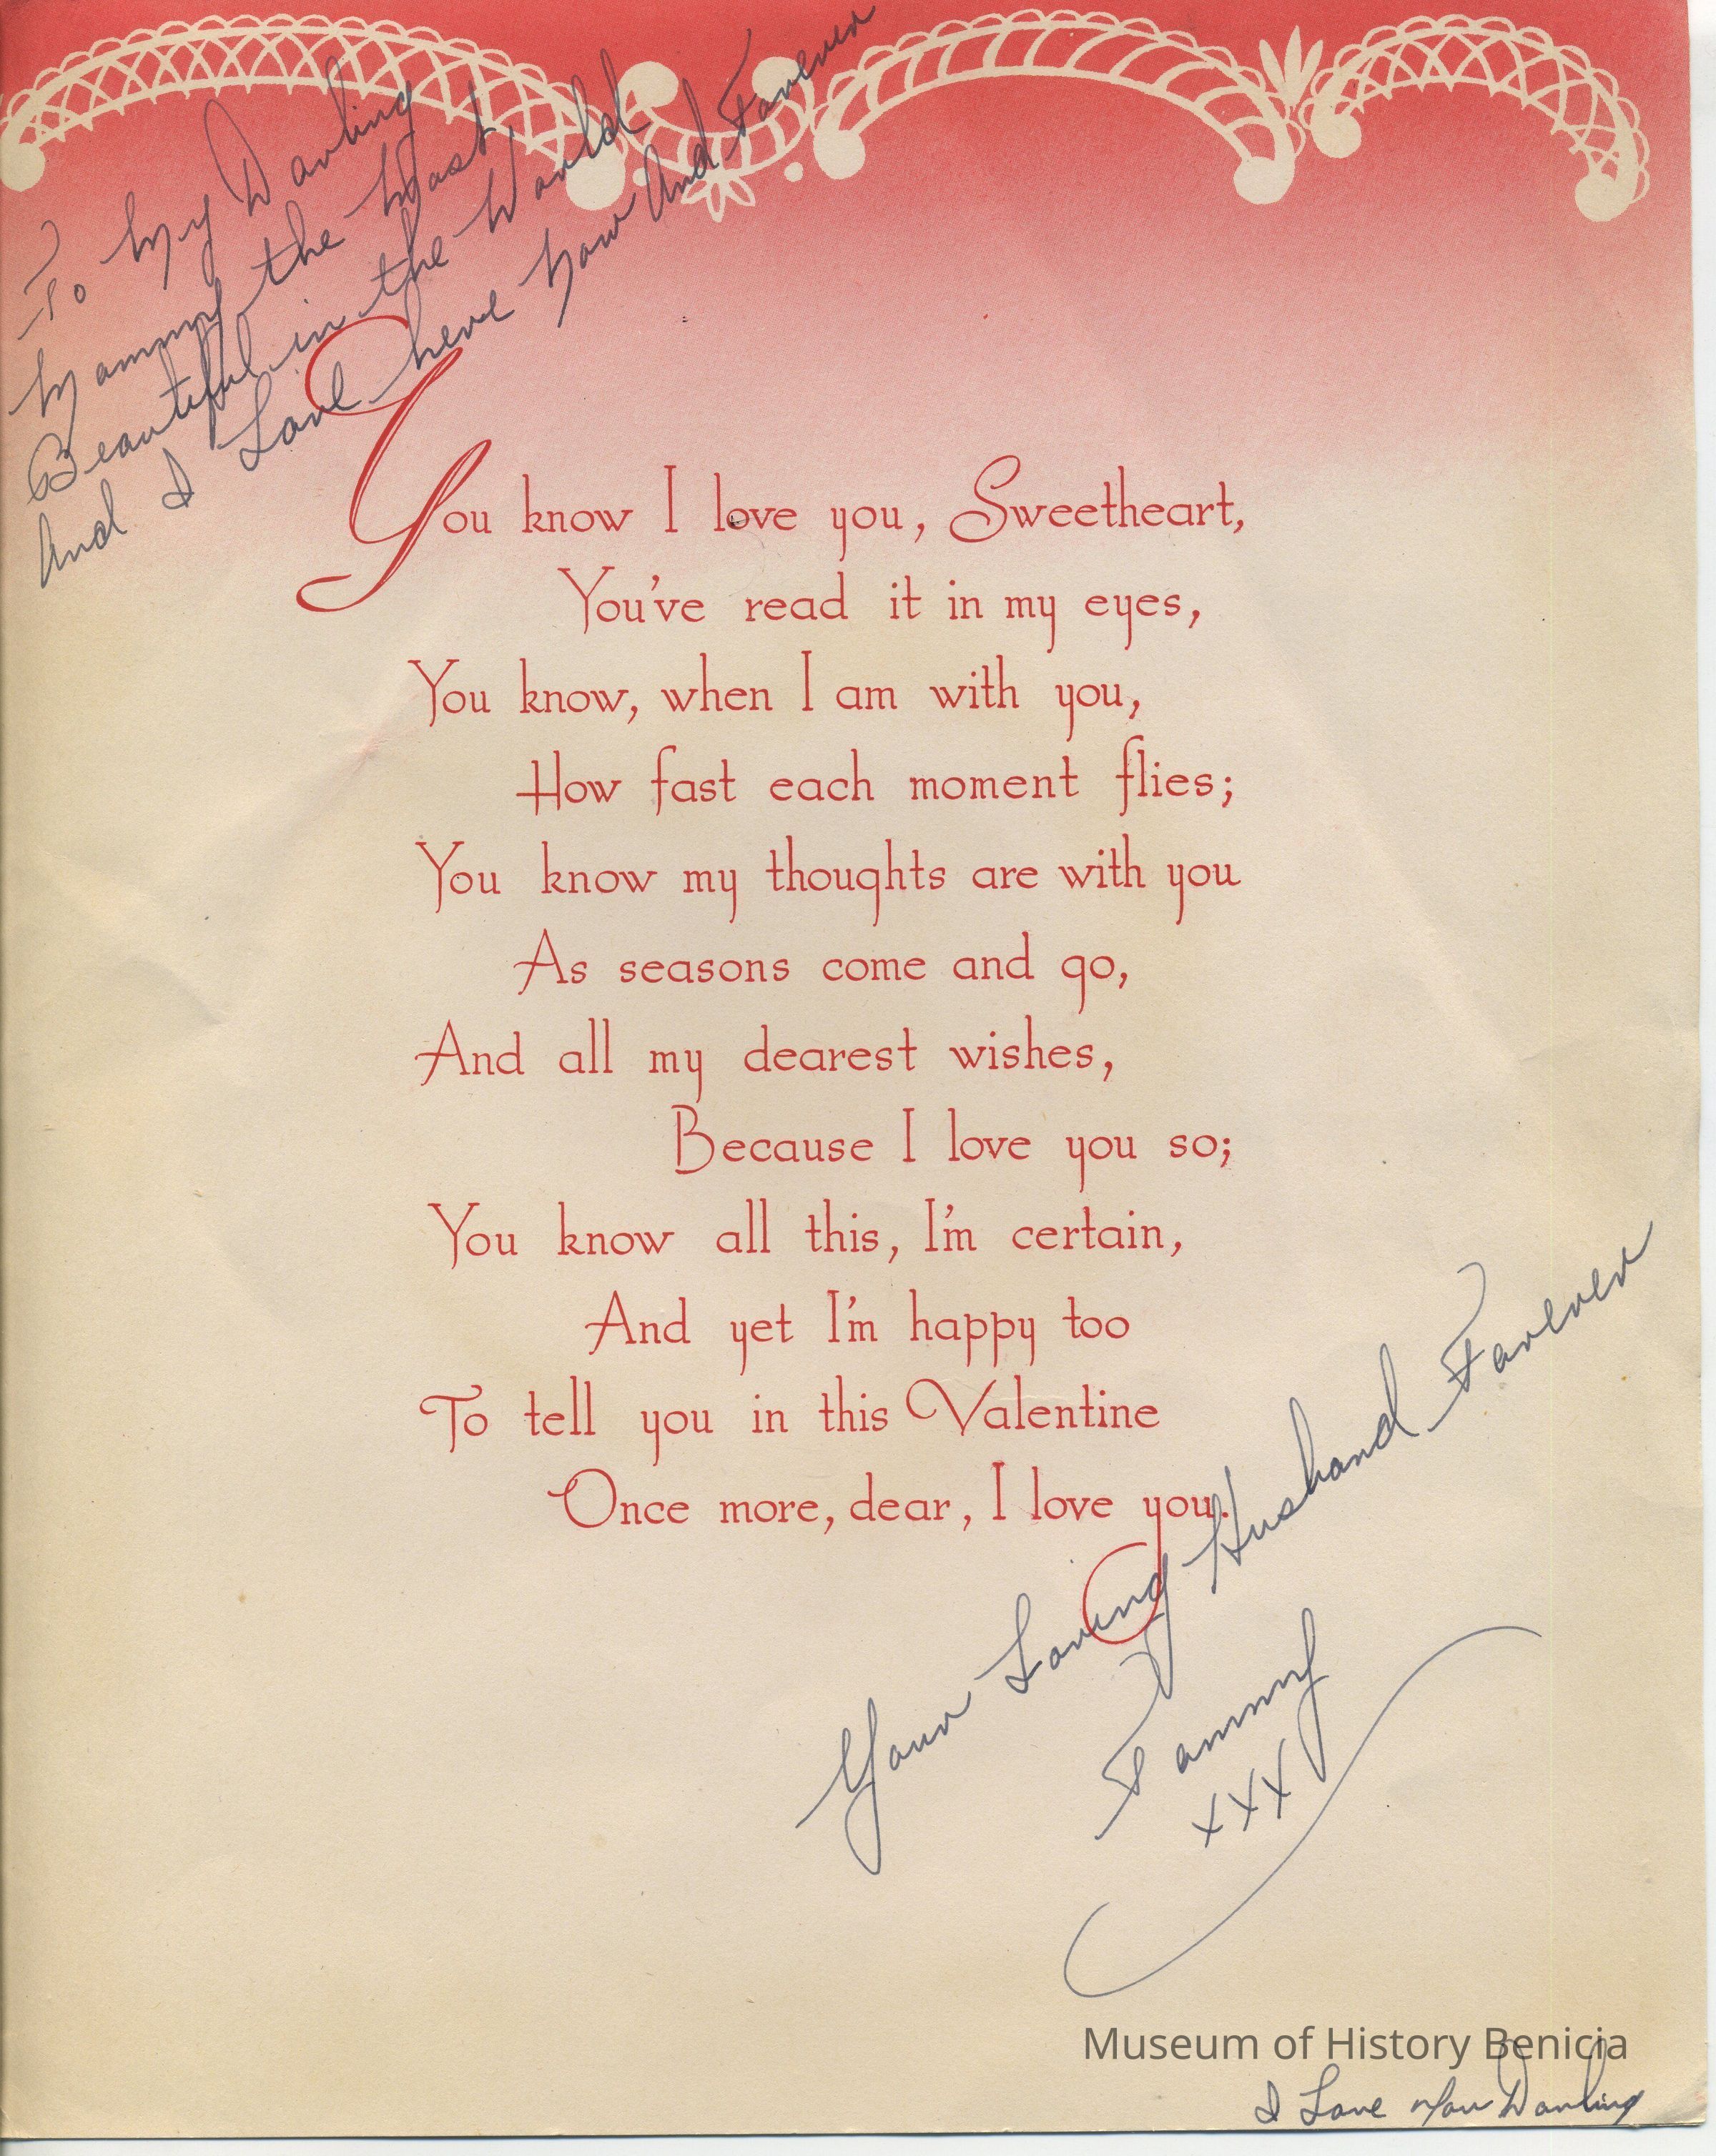 To My Darling
Mammy the Most
Beautiful in the World
And I Love here Now And Forever
You know I love you, Sweetheart,
You've read it in my eyes,
You know, when I am with you,
How fast each moment flies;
You know my thoughts are with you
As seasons come and go,
And all my dearest wishes,
Because I love you so;
You know all this, I'm certain,
And yet I'm happy too
To tell you in this Valentine
Once more, dear, I love you.
Your Loving Husband Forever
Tammy
XXX
Museum of History Benicia
I Love You Darling